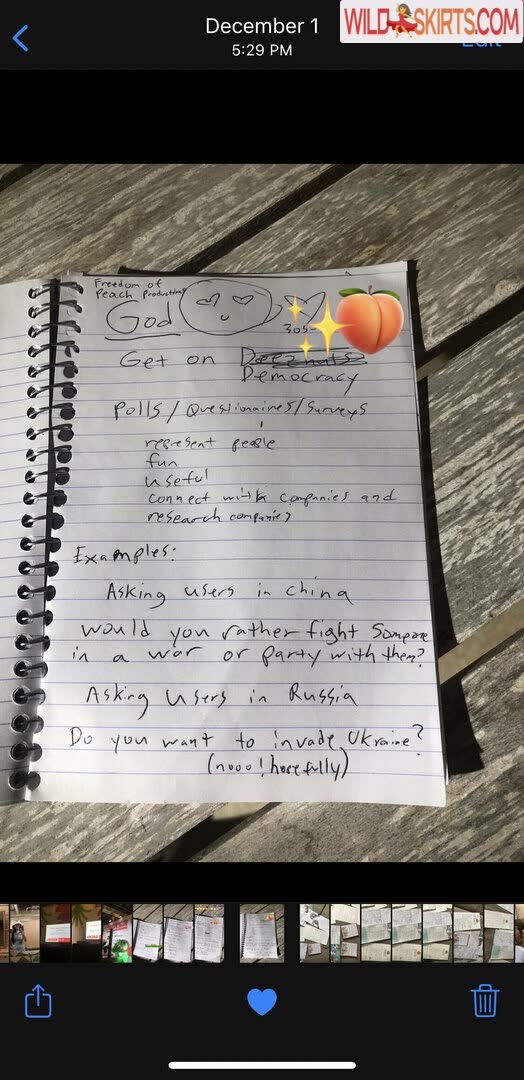 December 1
5:29 PM
WILDSKIRTS.COM
Edit
Freedom of
Peach Productions
God
305-
Get on Deezchats
Democracy
Polls/Questionnaires/Surveys
represent people
fun
useful
connect with companies and
research companies
Examples:
Asking users in china
would you rather fight someone
in a war or party with them?
Asking users in Russia
Do you want to invade Ukraine?
(nooo! hopefully)